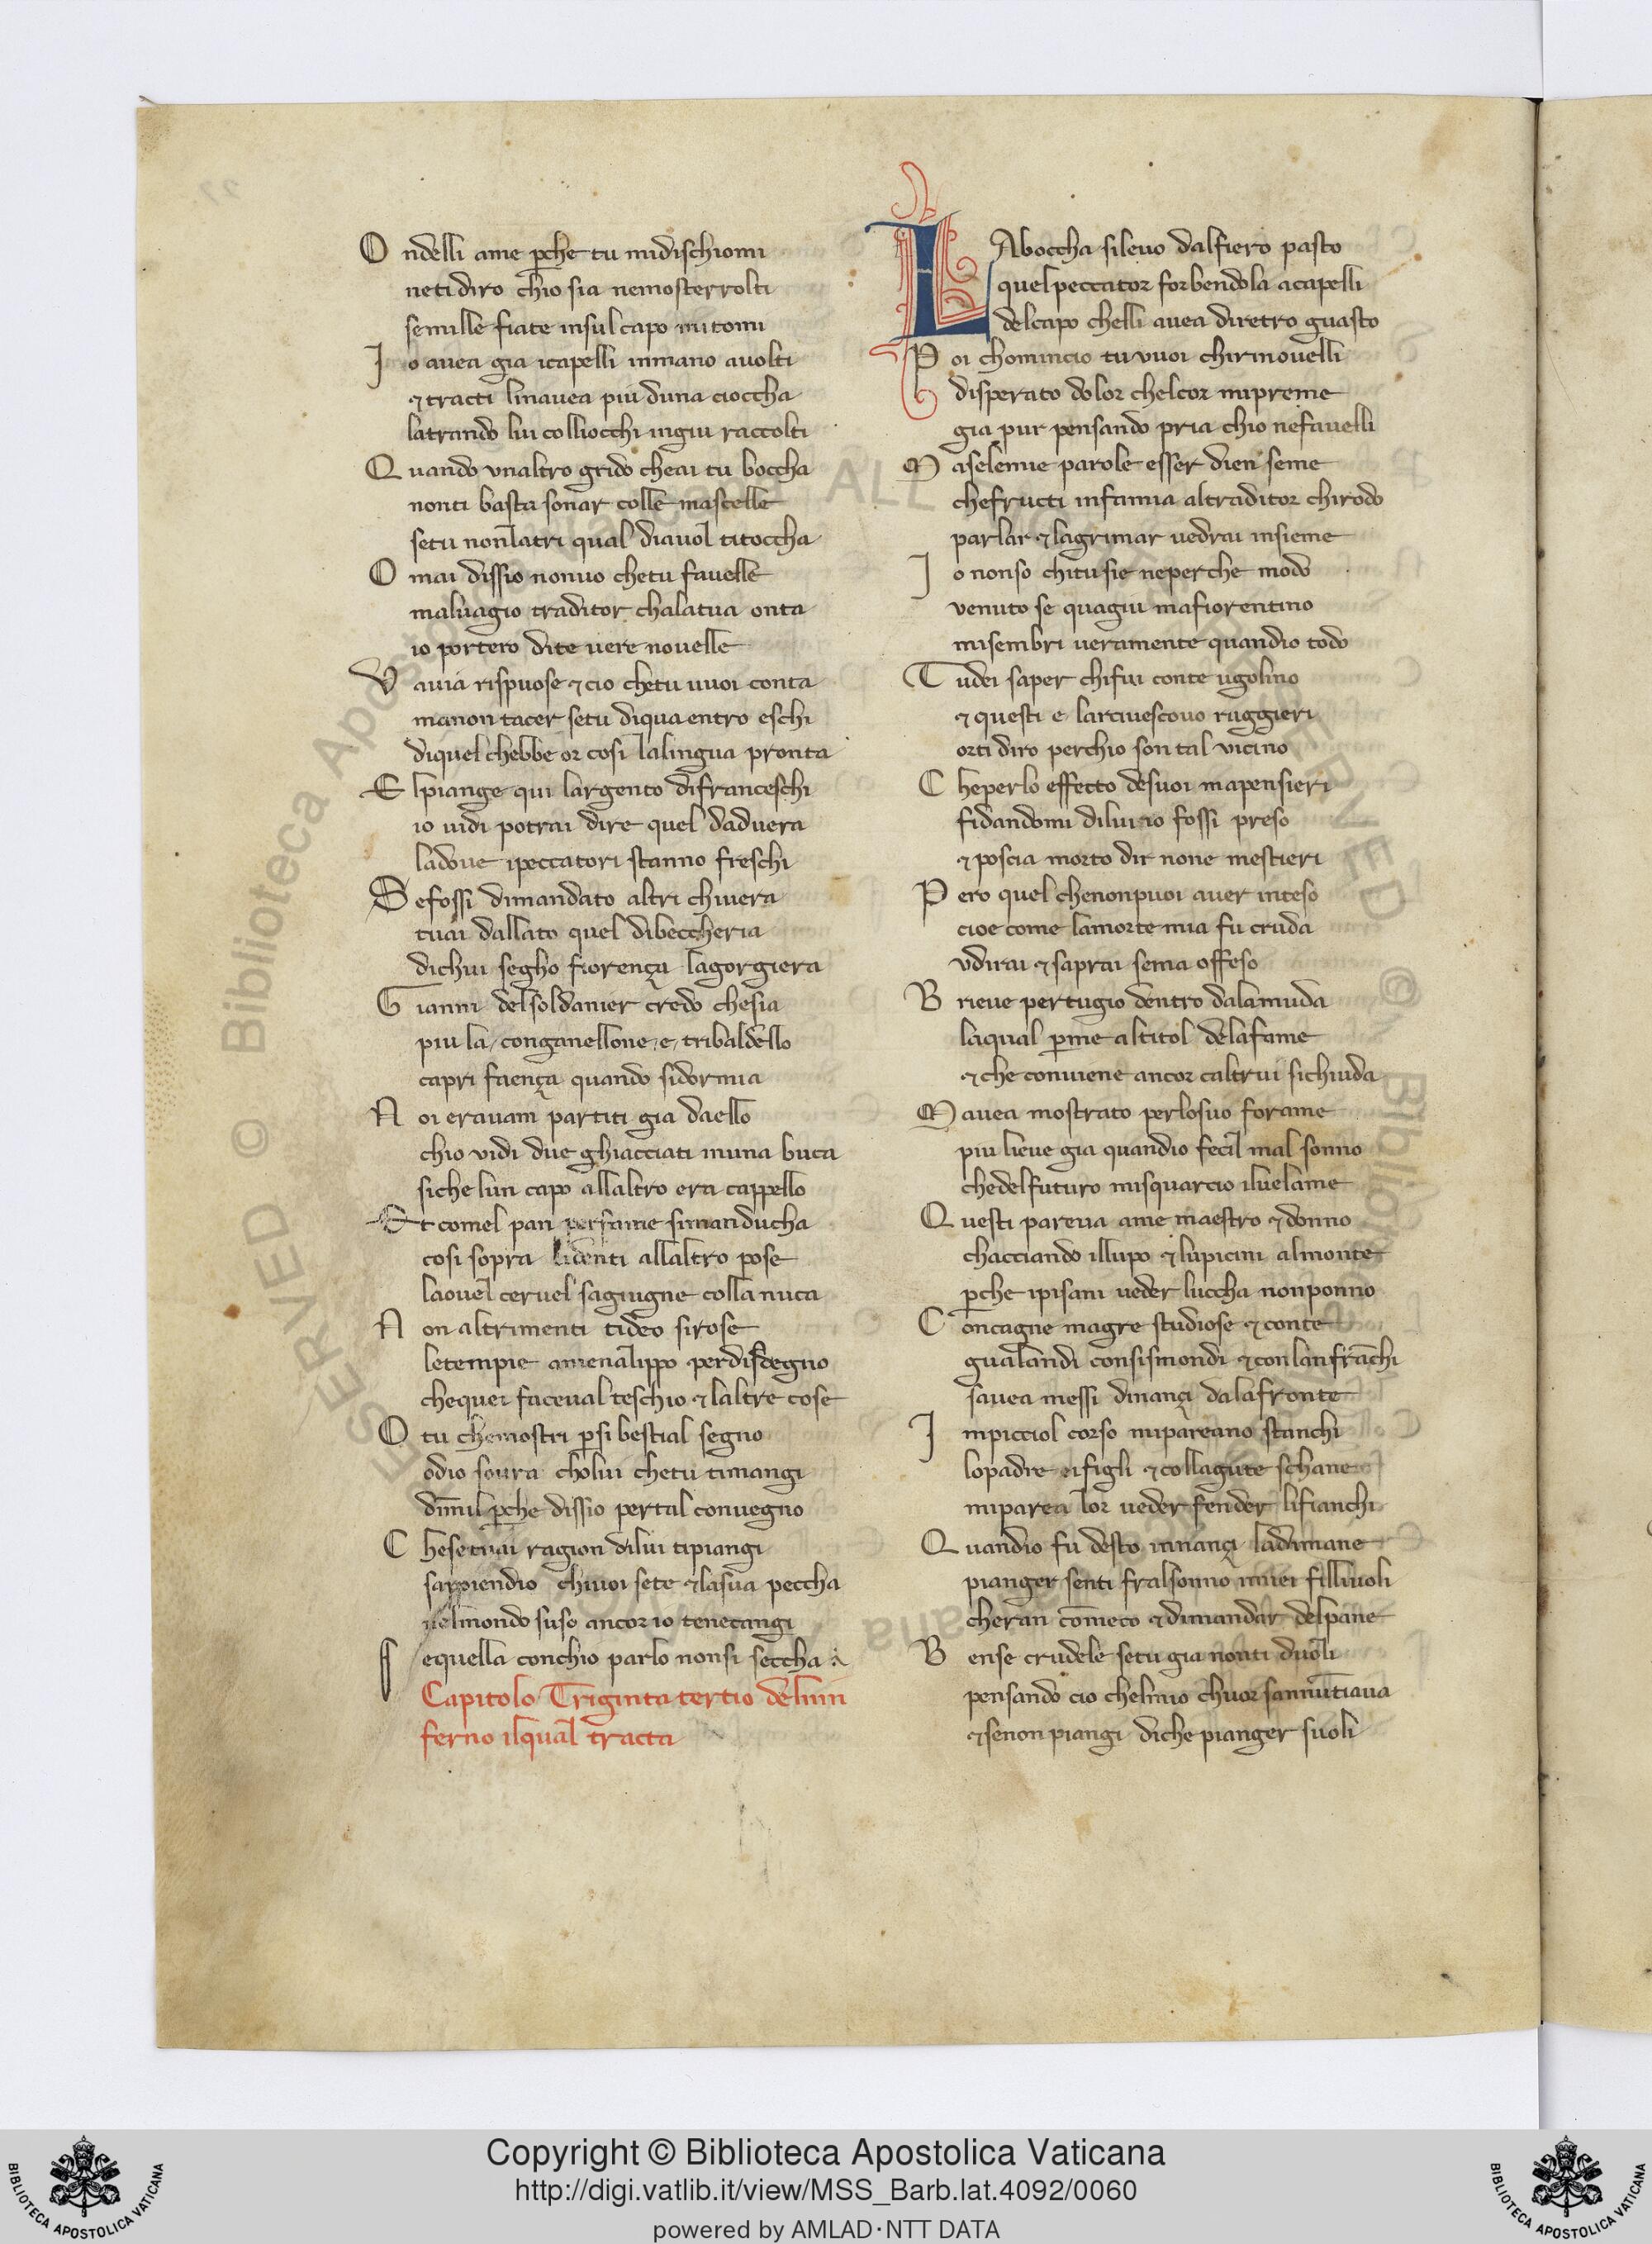 O ndelli ame perche tu midischiomi
netidiro chio sia nemosterrolti
semille fiate insul capo mitomi
I o avea gia icapelli inmano avolti
⁊ tracti linavea piu duna cioccha
latrando lui colliocchi ingiu raccolti
Q uando vnaltro grido cheai tu boccha
nonti basta sonar colle mascelle
setu nonlatri qual diavol titoccha
O mai dissio nonvo chetu favelle
malvagio traditor chalatua onta
io portero dite vere novelle
V avia rispuose ⁊ cio chetu vuoi conta
manon tacer setu diqua entro eschi
diquel chebbe or cosi lalingua pronta
E lpiange qui largento difranceschi
io vidi potrai dire quel daduera
ladove ipeccatori stanno freschi
S efossi dimandato altri chivera
tuai dallato quel dibeccheria
dichui segho fiorença lagorgiera
G ianni delsoldanier credo chesia
piu la conganellone e tribaldello
capri faença quando sidormia
N oi eravam partiti gia daello
chio vidi due ghiacciati inuna buca
siche lun capo allaltro era cappello
E t comel pan perfame simanducha
cosi sopra lidenti allaltro pose
laovel cervel sagiugne colla nuca
N on altrimenti tideo sirose
letempie amenalippo perdisdegno
chequei facevalteschio ⁊ laltre cose
O tu chemostri persi bestial segno
odio soura cholui chetu timangi
dimmil perche dissio pertal convegno
C hesetuai ragion dilui tipiangi
sappiendio chivoi sete ⁊ lasua peccha
nelmondo suso ancor io tenecangi
S equella conchio parlo nonsi seccha
Capitolo Triginta tertio delinin
ferno ilqual tracta
LAboccha silevo dalfiero pasto
quelpeccator forbendola acapelli
delcapo chelli avea diretro guasto
P oi chomincio tu vuoi chirinovelli
disperato dolor chelcor mipreme
gia pur pensando pria chio nefavelli
M aselemie parole esser dien seme
chefructi infamia altraditor chirodo
parlar ⁊ lagrimar vedrai insieme
I o nonso chitusie neperche modo
venuto se quagiu mafiorentino
misembri veramente quandio todo
T udei saper chifui conte ugolino
⁊ questi e larcivescovo ruggieri
orti diro perchio son tal vicino
C heperlo effecto desuoi mapensieri
fidandomi dilui io fossi preso
⁊ poscia morto dir none mestieri
P ero quel chenonpuoi aver inteso
cioe come lamorte mia fu cruda
vdirai ⁊ saprai sema offeso
B rieve pertugio dentro dalamuda
laqual perme altitol delafame
⁊ che conviene ancor caltrui sichiuda
M avea mostrato perlosuo forame
piu lieve gia quandio fecil mal sonno
chedelfuturo misquarcio ilvelame
Q uesti pareva ame maestro ⁊ donno
chacciando illupo ⁊ lupicini almonte
perche ipisani veder luccha nonponno
C oncagne magre studiose ⁊ conte
gualandi consismondi ⁊ con lanfranchi
savea messi dinançi dalafronte
I npicciol corso mipareano stanchi
lopadre eifigli ⁊ collagute schane
miparea lor veder fender lifianchi
Q uandio fu desto innançi ladimane
pianger senti fralsonno imiei fillivoli
cheran comeco ⁊ dimandar delpane
B ense crudele setu gia nonti duoli
pensando cio chelmio chuor sannuntiava
⁊ senon piangi diche pianger suoli
Copyright © Biblioteca Apostolica Vaticana
http://digi.vatlib.it/view/MSS_Barb.lat.4092/0060
powered by AMLAD·NTT DATA
BIBLIOTECA APOSTOLICA VATICANA
BIBLIOTECA APOSTOLICA VATICANA